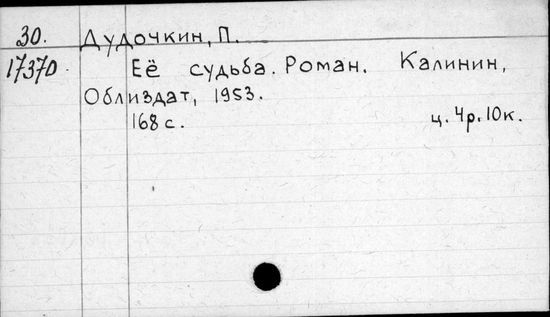 30. Дудочкин, П.
17370 Её судьба. Роман. Калинин,
Облиздат, 1953.
168 с. ц. 4р. 10к.